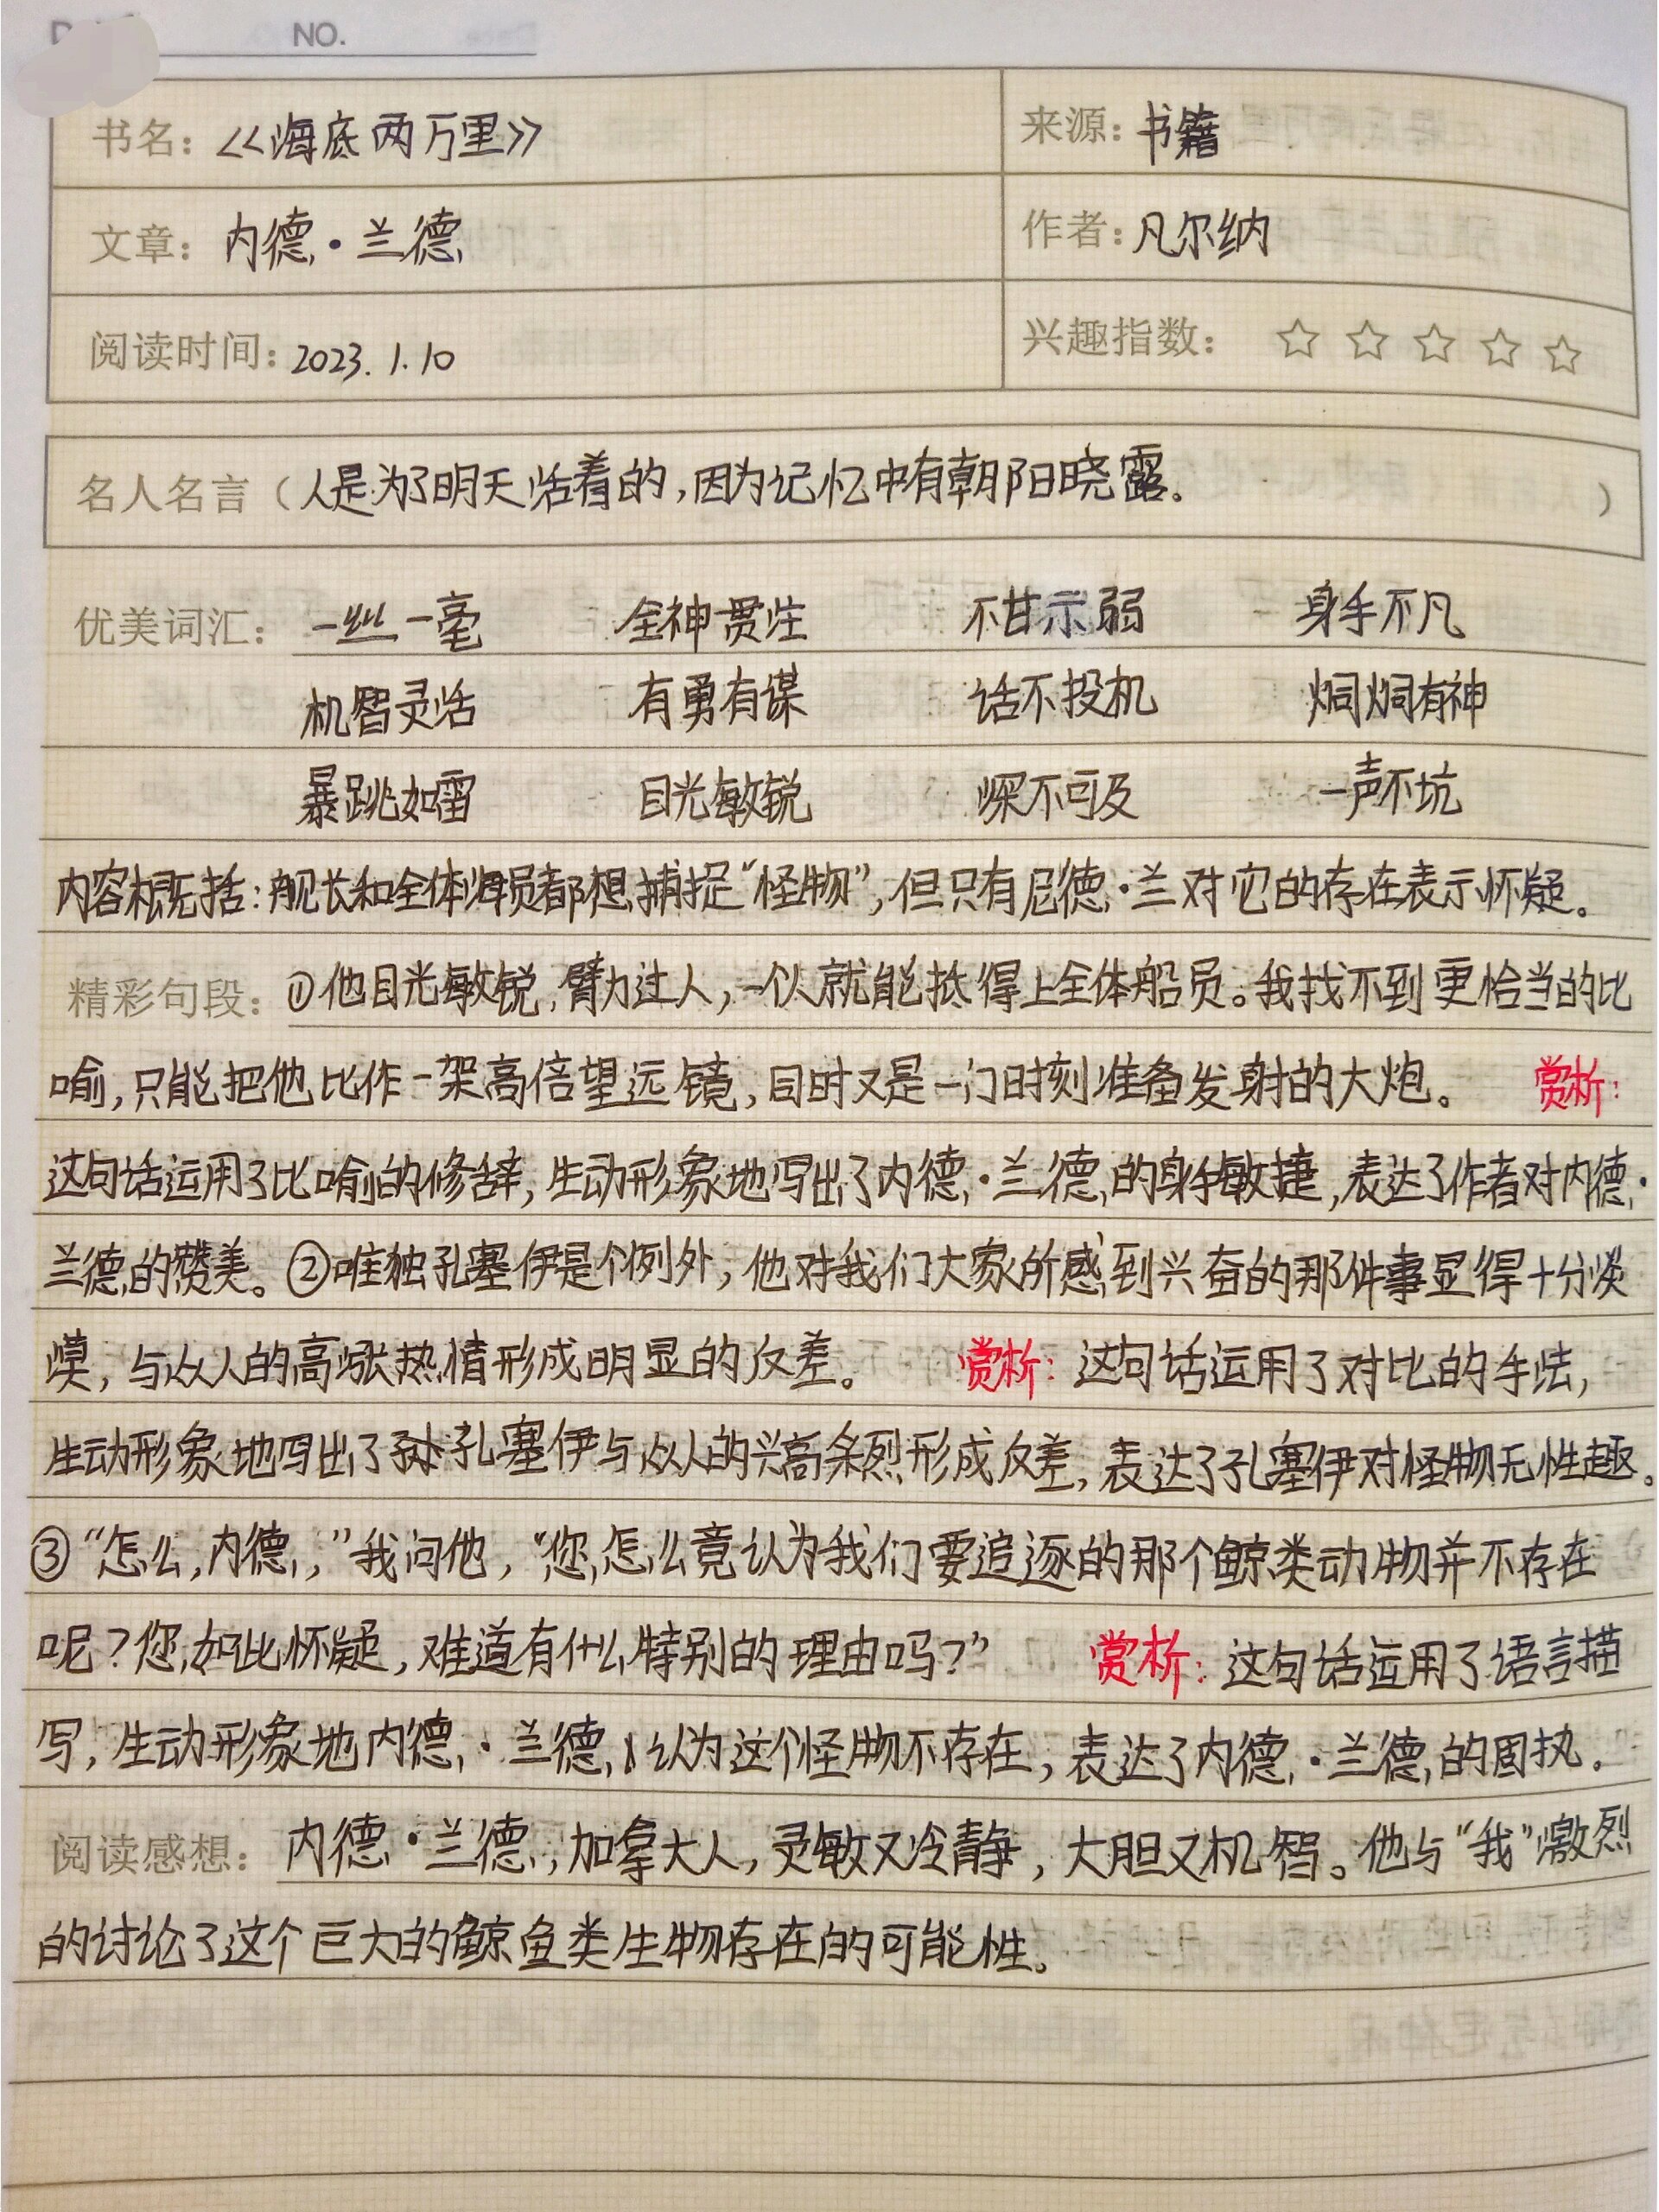 NO.
书名：《海底两万里》 来源：书籍
文章：内德·兰德 作者：凡尔纳
阅读时间：2023.1.10 兴趣指数：☆☆☆☆☆
名人名言（人是为了明天活着的，因为记忆中有朝阳晓露。）
优美词汇：一丝一毫 全神贯注 不甘示弱 身手不凡
机智灵活 有勇有谋 话不投机 炯炯有神
暴跳如雷 目光敏锐 深不可及 一声不坑
内容概括：舰长和全体船员都想捕捉“怪物”，但只有尼德·兰对它的存在表示怀疑。
精彩句段：①他目光敏锐，臂力过人，一个人就能抵得上全体船员。我找不到更恰当的比
喻，只能把他比作一架高倍望远镜，同时又是一门时刻准备发射的大炮。 赏析：
这句话运用了比喻的修辞，生动形象地写出了内德·兰德的身手敏捷，表达了作者对内德·
兰德的赞美。②唯独孔塞伊是个例外，他对我们大家所感到兴奋的那件事显得十分淡
漠，与众人的高涨热情形成明显的反差。 赏析：这句话运用了对比的手法，
生动形象地写出了孔塞伊与众人的兴高采烈形成反差，表达了孔塞伊对怪物无性趣。
③“怎么，内德，”我问他，“您怎么竟认为我们要追逐的那个鲸类动物并不存在
呢？您如此怀疑，难道有什么特别的理由吗？” 赏析：这句话运用了语言描
写，生动形象地内德·兰德认为这个怪物不存在，表达了内德·兰德的固执。
阅读感想：内德·兰德，加拿大人，灵敏又冷静，大胆又机智。他与“我”激烈
的讨论了这个巨大的鲸鱼类生物存在的可能性。